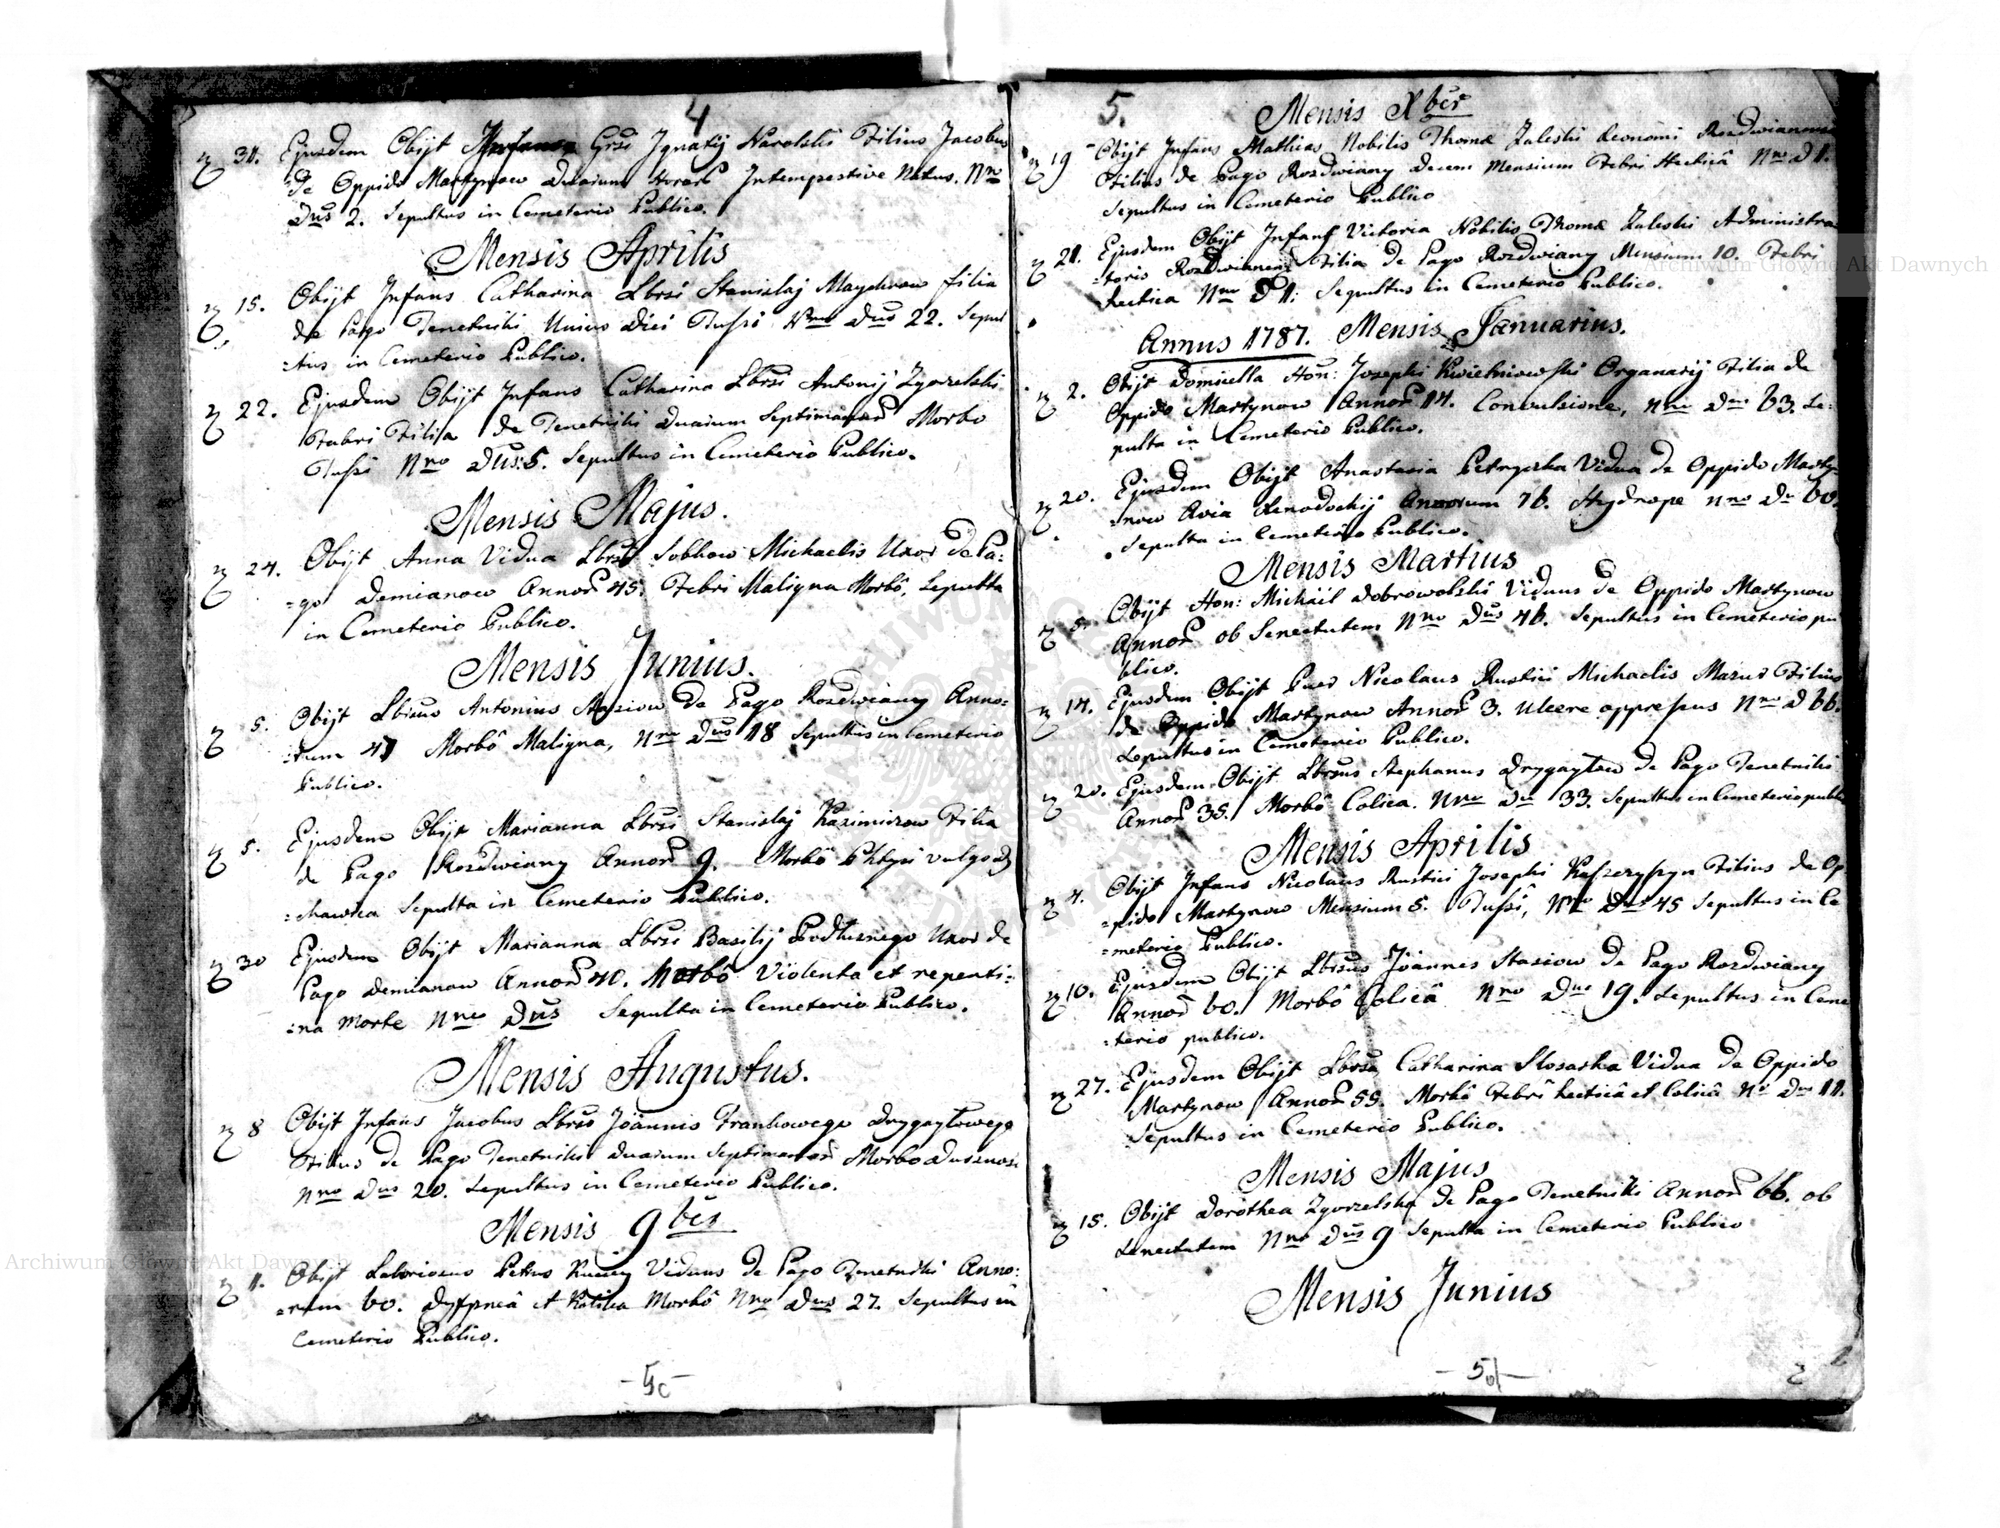 4
31. Ejusdem Obijt Infans Grsi Ignatij Narolski Filius Jacobus
de Oppido Martynow Duarum Horar Intempestive Natus. Nro
Dus 2. Sepultus in Cemeterio Publico.
Mensis Aprilis
15. Obijt Infans Catharina Lbrsi Stanislaj filia
de Pago Tenetniki Unius Diei Tussi Nro Dus 22. Sepul
-tus in Cemeterio Publico.
22. Ejusdem Obijt Infans Catharina Lbrsi Antonij Zgorzelski
Fabri Filia de Tenetniki Duarum Septimanar Morbo
Tussi Nro Dus: 5. Sepultus in Cemeterio Publico.
Mensis Majus.
24. Obijt Anna Vidua Lbrsi Sobkow Michaelis Uxor de Pa=
=go Demianow Annor 45. Febri Maligna Morbô, Sepulta
in Cemeterio Publico.
Mensis Junius.
5. Obijt Lbrsus Antonius Stasiow de Pago Rozdwiany Anno=
=rum 47 Morbô Maligna, Nro Dus 18 Sepultus in Cemeterio
Publico.
5. Ejusdem Obijt Marianna Lbrsi Stanislaj Kazimirow Filia
de Pago Rozdwiany Annor 9. Morbô Phtysi vulgo
=chawica Sepulta in Cemeterio Publico.
30 Ejusdem Obijt Marianna Lbrsi Basilij Podluznego Uxor de
Pago Demianow Annor 40. Morbô Violenta et repenti=
=na Morte Nro Dus Sepulta in Cemeterio Publico.
Mensis Augustus.
8 Obijt Infans Jacobus Lbrsi Jöannis Frankowego Drygaylowego
Filius de Pago Tenetniki Duarum Septimanar Morbo
Nro Dus 20. Sepultus in Cemeterio Publico.
Mensis 9bris
1. Obijt Laboriosus Petrus Viduus de Pago Tenetniki Anno=
=rum 60. Dyspneâ et Morbô Nro Dus 27. Sepultus in
Cemeterio Publico.
5c
5.
Mensis Xbris
19 Obijt Infans Mathias Nobilis Thomæ Zaleski Rozdwianensis
Filius de Pago Rozdwiany Decem Mensium Febri Hecticâ Nro D 1.
Sepultus in Cemeterio Publico
21. Ejusdem Obijt Infans Victoria Nobilis Thomæ Zaleski Administra
=toris Rozdwianensis Filia de Pago Rozdwiany Mensium 10. Febri
hectica Nro D 1: Sepultus in Cemeterio Publico.
Annus 1787. Mensis Januarius.
2. Obijt Domicella Hon: Josephi Kwietniowski Organarij Filia de
Oppido Martynow Annor 14. Convulsione, Nro Dus 63. Se=
pulta in Cemeterio Publico.
20. Ejusdem Obijt Anastasia Petryczka Vidua de Oppido Marty=
=now Avia Annorum 76. Hydrope Nro Ds 60.
Sepulta in Cemeterio Publico.
Mensis Martius
5. Obijt Hon: Michäel Dobrowolski Viduus de Oppido Martynow
Annor ob Senectutem Nro Dus 46. Sepultus in Cemeterio pu
blico.
14. Ejusdem Obijt Puer Nicolaus Rustici Michaelis Mazur Filius
de Oppido Martynow Annor 3. Ulcere oppressus Nro D 66.
Sepultus in Cemeterio Publico.
20. Ejusdem Obijt Lbrsus Stephanus Drygaylow de Pago Tenetniki
Annor 35. Morbô Colica. Nro Ds 33. Sepultus in Cemeterio publi
Mensis Aprilis
4. Obijt Infans Nicolaus Rustici Josephi Filius de Op
=pido Martynow Mensium 5. Tussi, Nro Dus 45 Sepultus in Ce
=meterio Publico.
10. Ejusdem Obijt Lbrsus Jöannes Stasiow de Pago Rozdwiany
Annor 60. Morbô Colicâ Nro Dus 19. Sepultus in Ceme
=terio publico.
27. Ejusdem Obijt Lbrsa Catharina Slosarka Vidua de Oppido
Martynow Annor 59. Morbô Febri hecticâ et Colicâ Nro Dus 11.
Sepultus in Cemeterio Publico.
Mensis Majus
15. Obijt Dorothea Zgorzelska de Pago Tenetniki Annor 66. ob
Senectutem Nro Dus 9 Sepulta in Cemeterio Publico
Mensis Junius
5d
2
Archiwum Główne Akt Dawnych
Archiwum Główne Akt Dawnych